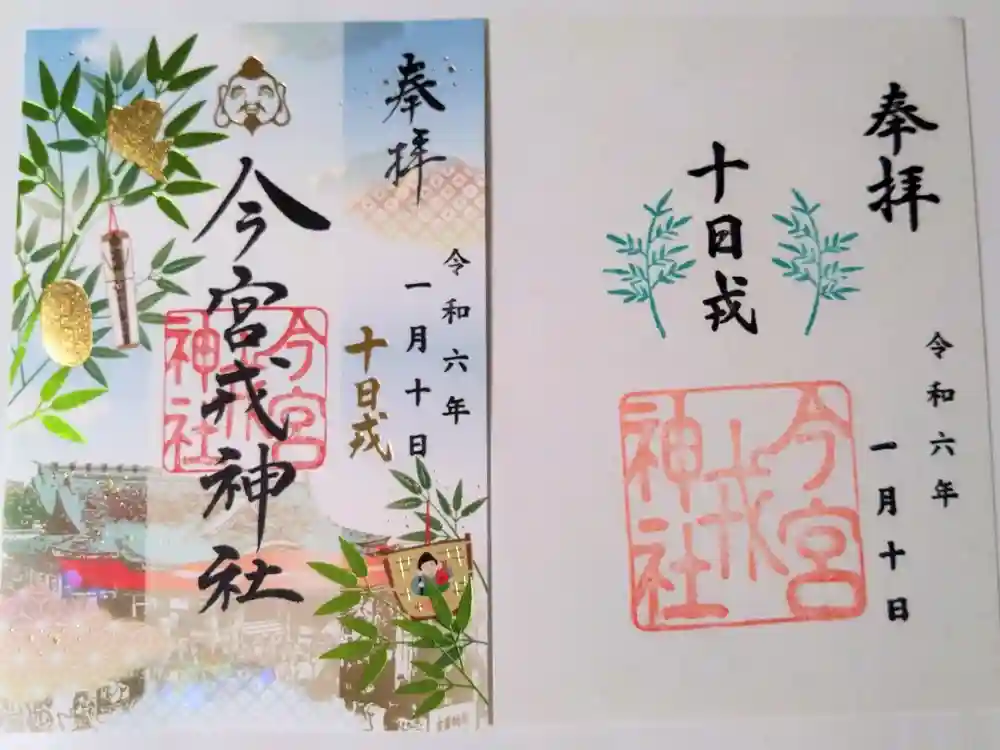 奉拝
令和六年
一月十日
十日戎
今宮戎神社
今宮戎神社
奉拝
十日戎
令和六年
一月十日
今宮戎神社